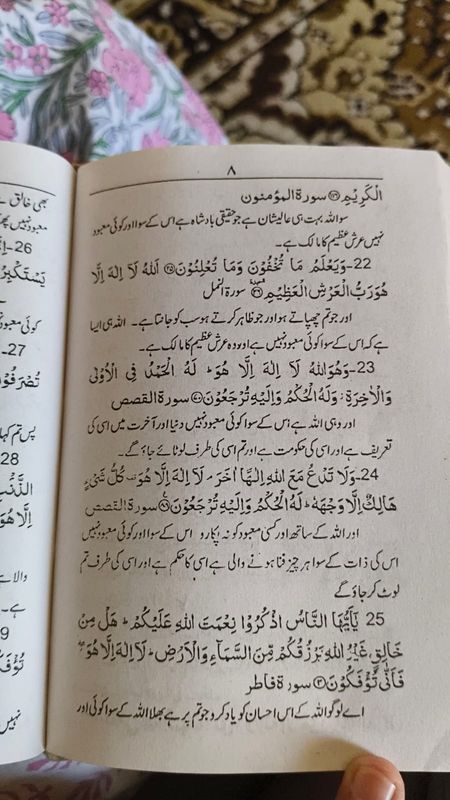 ۸
الْكَرِيْمِ ۝۱۱۶ سورۃ المؤمنون
سو اللہ بہت ہی عالیشان ہے جو حقیقی بادشاہ ہے اس کے سوا اور کوئی معبود
نہیں عرش عظیم کا مالک ہے۔
22-وَيَعْلَمُ مَا تُخْفُوْنَ وَمَا تُعْلِنُوْنَ ۝۲۵ اَللّٰهُ لَآ اِلٰهَ اِلَّا
هُوَ رَبُّ الْعَرْشِ الْعَظِيْمِ ۝۲۶ سورۃ النمل
اور جو تم چھپاتے ہو اور جو ظاہر کرتے ہو سب کو جانتا ہے۔ اللہ ہی ایسا
ہے کہ اس کے سوا کوئی معبود نہیں ہے اور وہ عرش عظیم کا مالک ہے۔
23-وَهُوَ اللّٰهُ لَآ اِلٰهَ اِلَّا هُوَ ؕ لَهُ الْحَمْدُ فِى الْاُوْلٰى
وَالْاٰخِرَةِ ؗ وَلَهُ الْحُكْمُ وَاِلَيْهِ تُرْجَعُوْنَ ۝۷۰ سورۃ القصص
اور وہی اللہ ہے جس کے سوا کوئی معبود نہیں دنیا اور آخرت میں اسی کی
تعریف ہے اور اسی کی حکومت ہے اور تم اسی کی طرف لوٹائے جاؤ گے۔
24-وَلَا تَدْعُ مَعَ اللّٰهِ اِلٰهًا اٰخَرَ ۘ لَآ اِلٰهَ اِلَّا هُوَ ۟ كُلُّ شَىْءٍ
هَالِكٌ اِلَّا وَجْهَهٗ ؕ لَهُ الْحُكْمُ وَاِلَيْهِ تُرْجَعُوْنَ ۝۸۸ سورۃ القصص
اور اللہ کے ساتھ اور کسی معبود کو نہ پکارو اس کے سوا اور کوئی معبود نہیں
اس کی ذات کے سوا ہر چیز فنا ہونے والی ہے اسی کا حکم ہے اور اسی کی طرف تم
لوٹ کر جاؤ گے
25 يٰۤاَيُّهَا النَّاسُ اذْكُرُوْا نِعْمَتَ اللّٰهِ عَلَيْكُمْ ؕ هَلْ مِنْ
خَالِقٍ غَيْرُ اللّٰهِ يَرْزُقُكُمْ مِّنَ السَّمَآءِ وَالْاَرْضِ ؕ لَآ اِلٰهَ اِلَّا هُوَ ۖ
فَاَنّٰى تُؤْفَكُوْنَ ۝۳ سورۃ فاطر
اے لوگو اللہ کے اس احسان کو یاد کرو جو تم پر ہے بھلا اللہ کے سوا کوئی اور
بھی خالق ہے
معبود نہیں
26-
يَسْتَكْبِرُ
کوئی معبود
27-
تُصْرَفُوْ
پس تم کہا
28
اِلَّا هُوَ
والا ہے
ہے۔
9
تُؤْفَكُ
نہیں